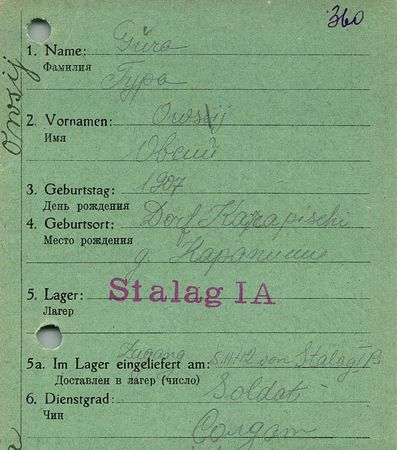 360
Owsij
1. Name: Gura
Фамилия Гура
2. Vornamen: Owsij
Имя Овсий
3. Geburtstag: 1907
День рождения
4. Geburtsort: Dorf Karapischi
Место рождения д. Карапиши
5. Lager: Stalag IA
Лагерь
5a. Im Lager eingeliefert am: Zugang 5.11.42 von Stalag I B
Доставлен в лагерь (число)
6. Dienstgrad: Soldat
Чин Солдат